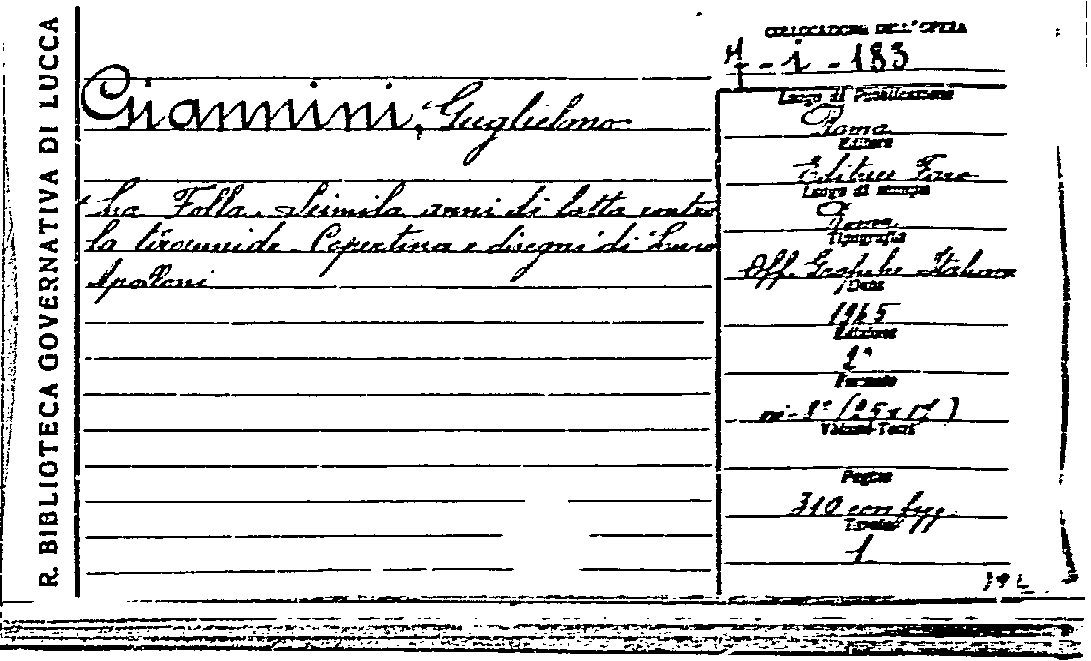 R. BIBLIOTECA GOVERNATIVA DI LUCCA
Giannini, Guglielmo
La Folla. Seimila anni di lotta contro
la tirannide. Copertina e disegni di
Apolloni
COLLOCAZIONE DELL'OPERA
i - 183
Luogo di Pubblicazione
Roma
Editore
Editrice Faro
Luogo di stampa
Roma
Tipografia
Off. Grafiche Italiane
Data
1945
Edizione
Formato
in-8° (25 x 17)
Volumi-Tomi
Pagine
310 con figg.
Tavole
1